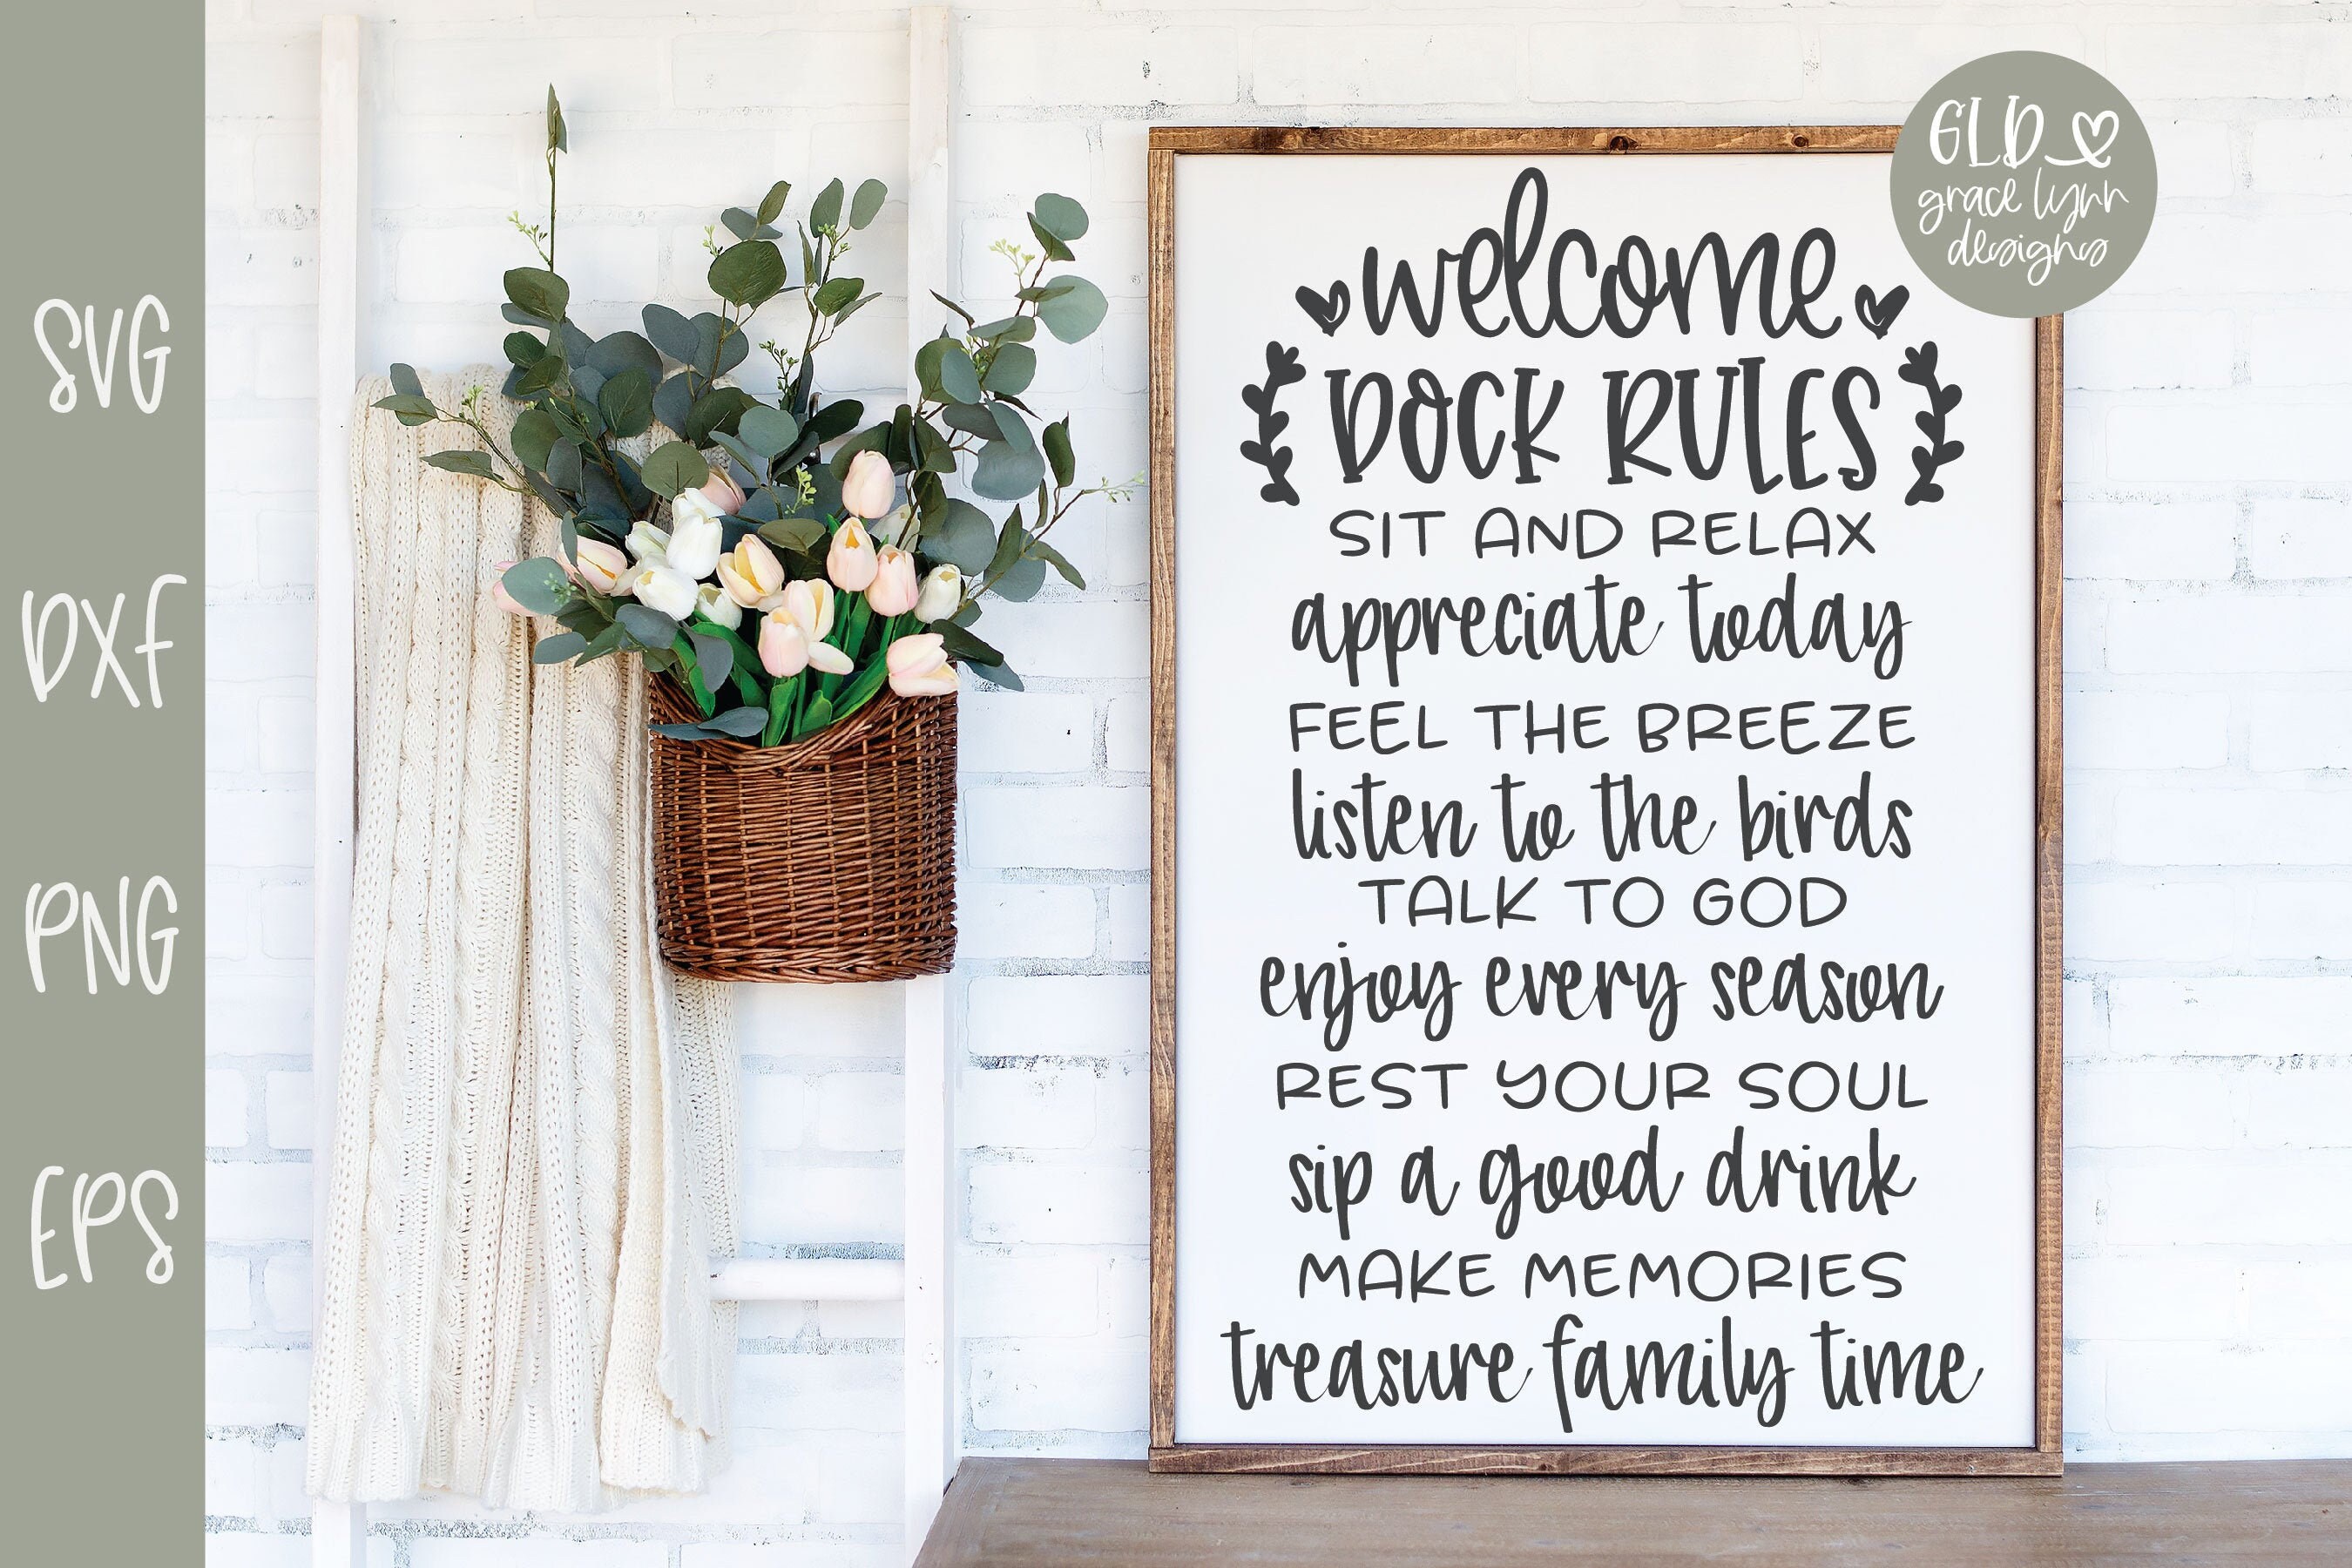 SVG
DXF
PNG
EPS
GLD
grace lynn
designs
welcome
DOCK RULES
SIT AND RELAX
appreciate today
FEEL THE BREEZE
listen to the birds
TALK TO GOD
enjoy every season
REST YOUR SOUL
sip a good drink
MAKE MEMORIES
treasure family time